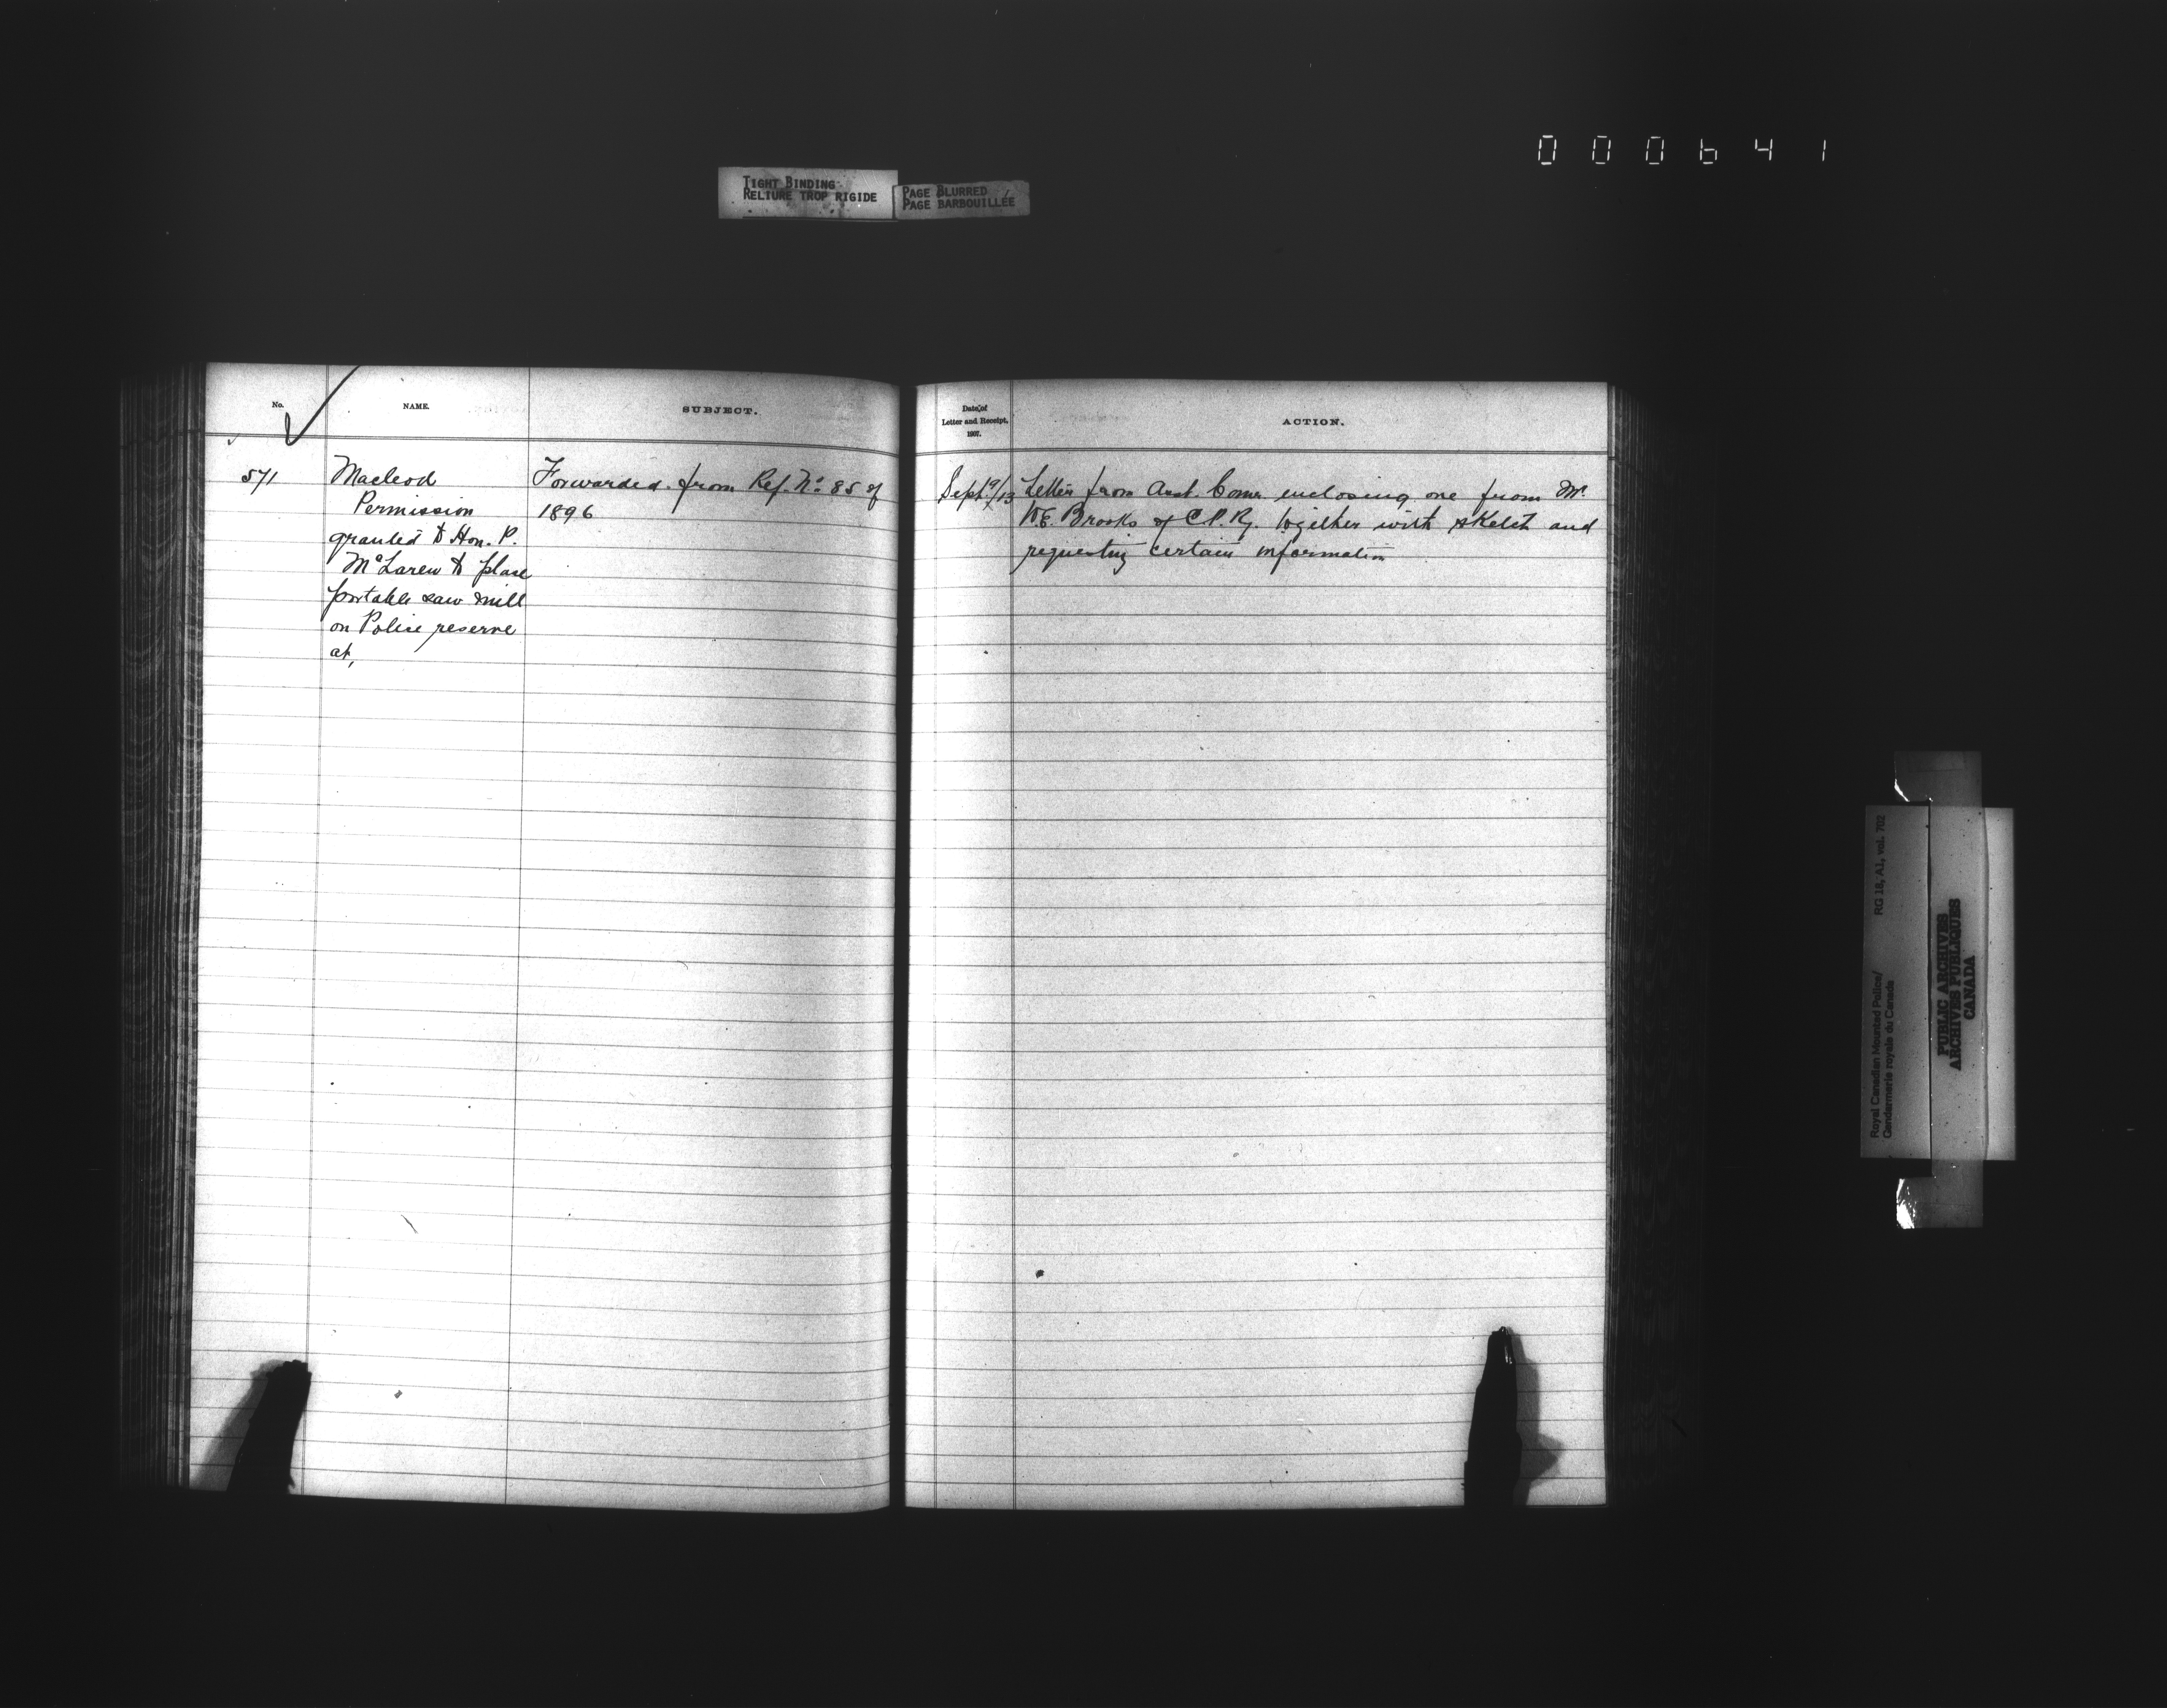 000641
TIGHT BINDING
RELIURE TROP RIGIDE
PAGE BLURRED
PAGE BARBOUILLÉE
No.
NAME.
SUBJECT.
571
Macleod
Permission
granted to Hon. P.
McLaren to place
portable saw mill
on Police reserve
at,
Forwarded from Ref. No. 85 of
1896
Date of
Letter and Receipt,
1907.
ACTION.
Sept. 9/13
Letter from Asst. Comr. enclosing one from Mr.
W.E. Brooks of C.P.Ry. together with sketch and
requesting certain information
Royal Canadian Mounted Police/
Gendarmerie royale du Canada
RG 18, A1, vol. 702
PUBLIC ARCHIVES
ARCHIVES PUBLIQUES
CANADA